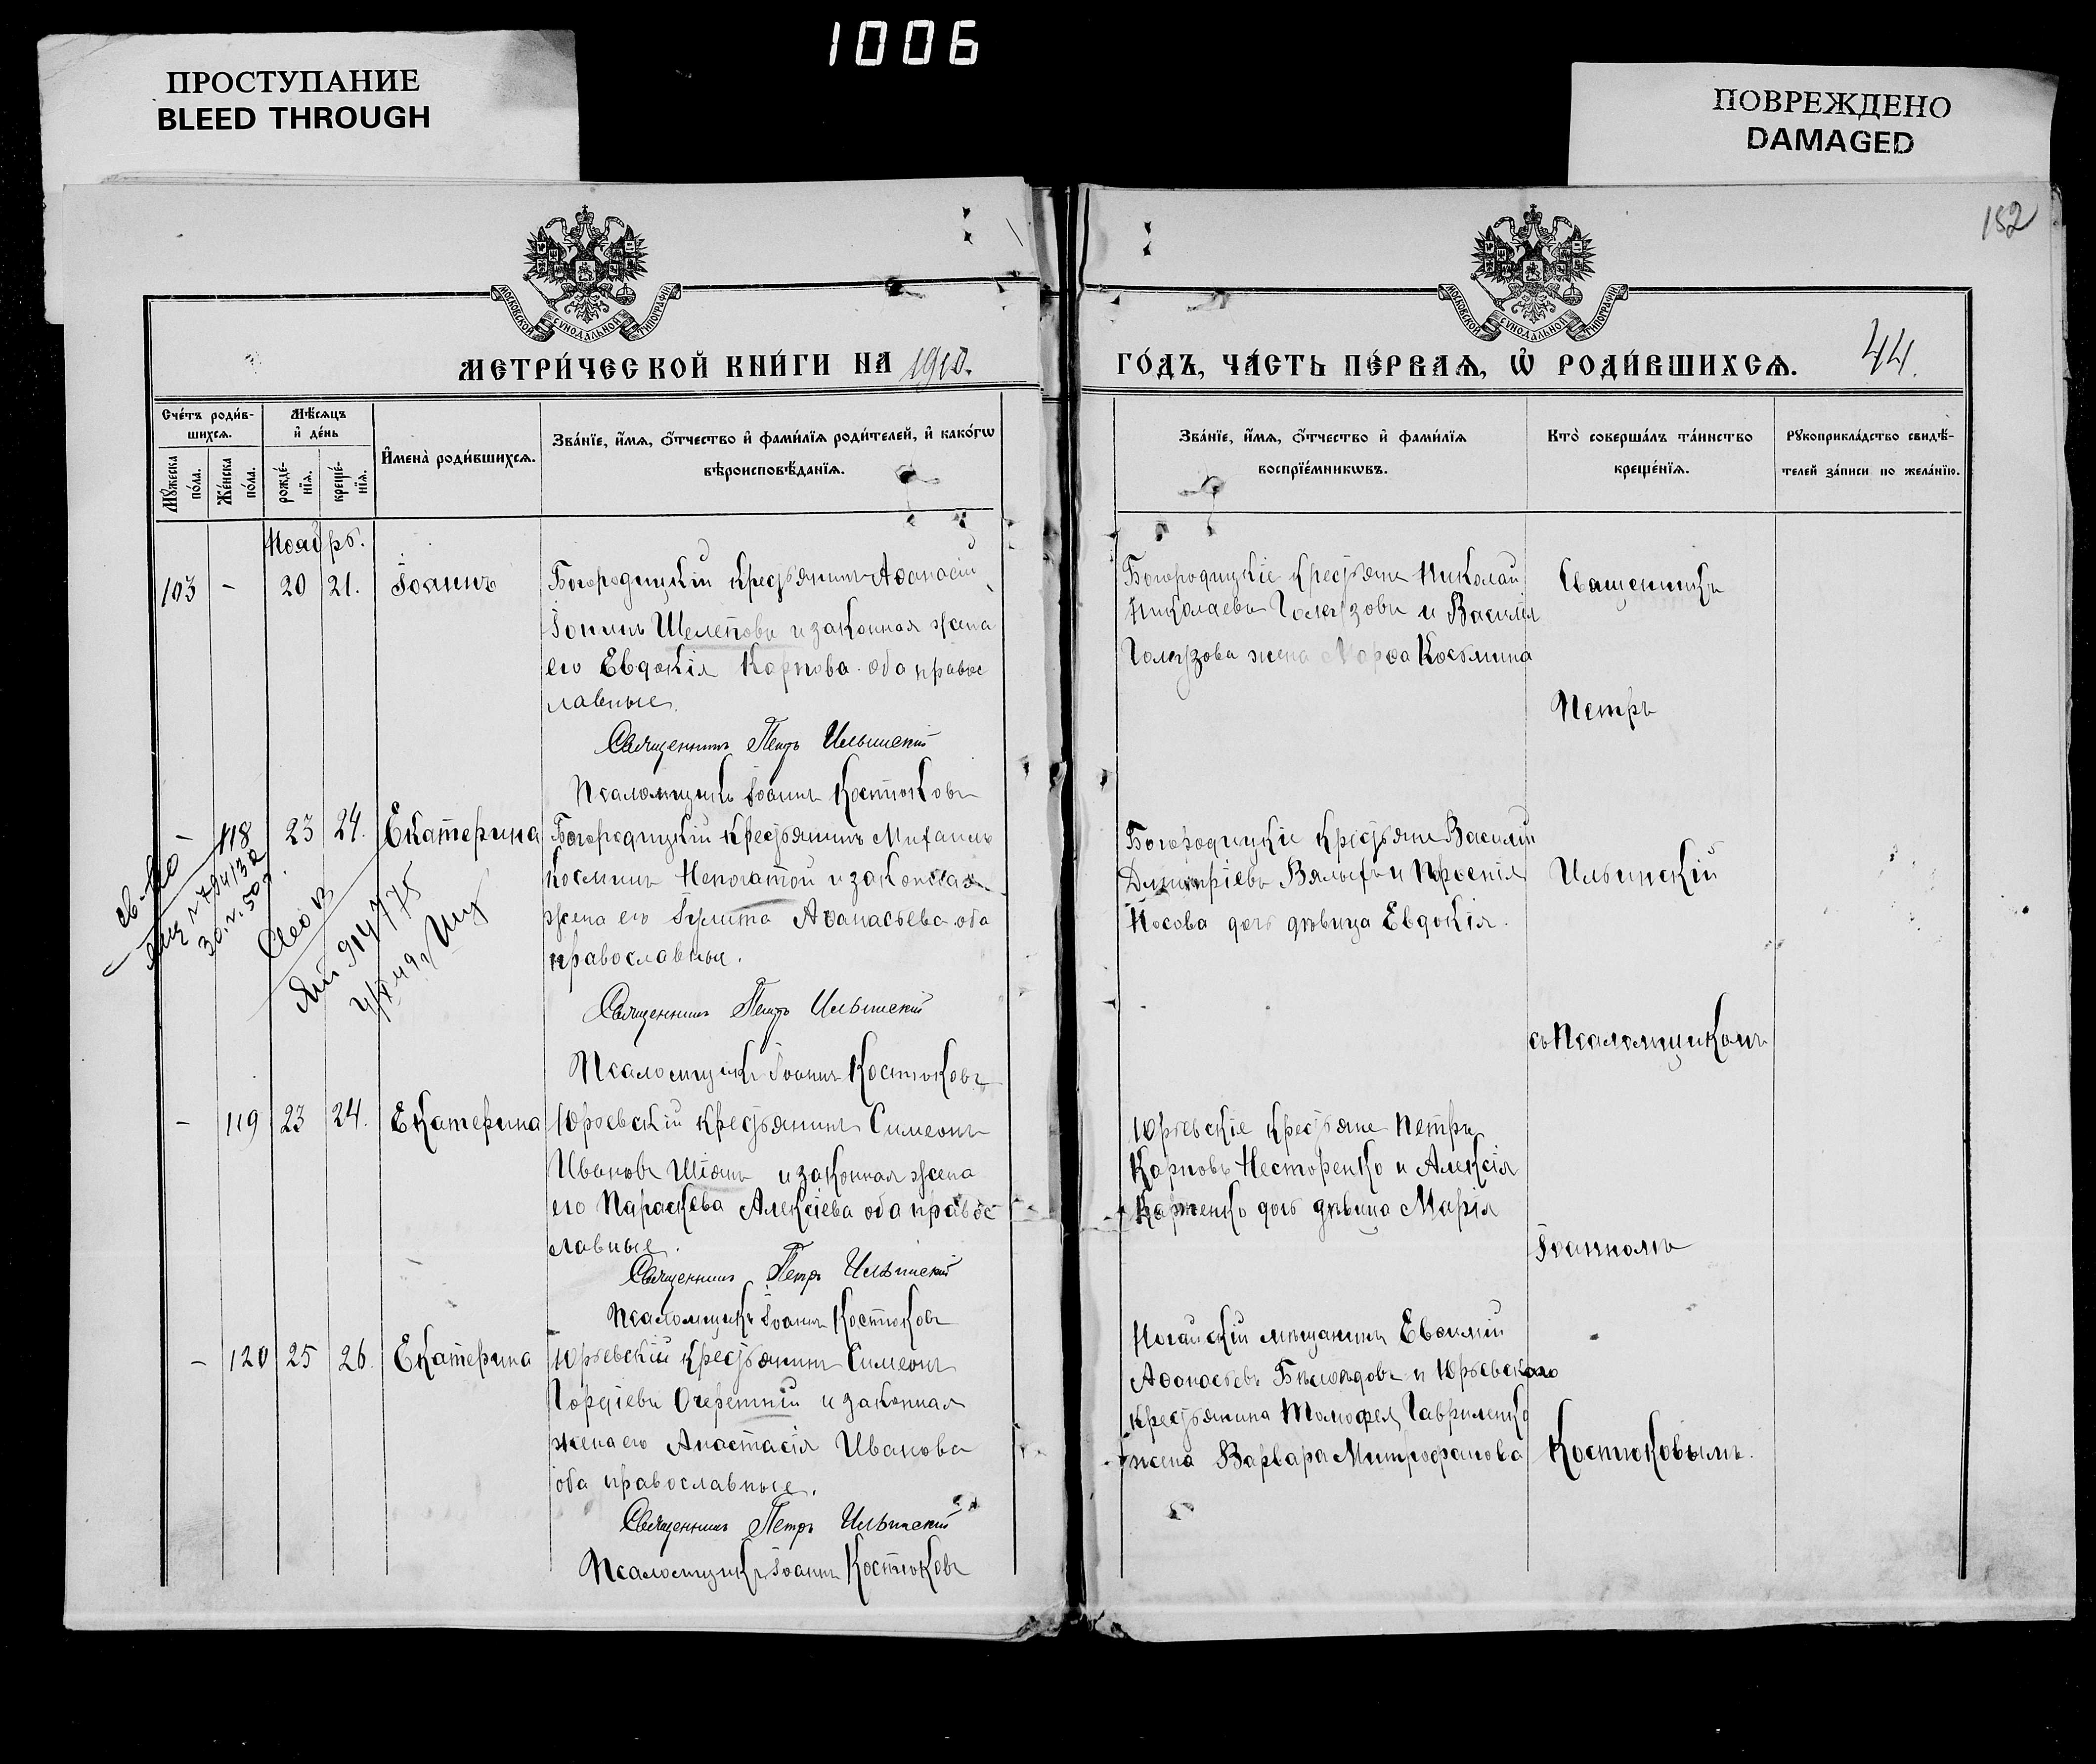 1006
ПРОСТУПАНИЕ
BLEED THROUGH
ПОВРЕЖДЕНО
DAMAGED
152
МОСКОВСКОЙ СѴНОДАЛЬНОЙ ТИПОГРАФІИ
МОСКОВСКОЙ СѴНОДАЛЬНОЙ ТИПОГРАФІИ
МЕТРИ́ЧЕСКОЙ КНИ́ГИ НА 1910.
ГО́ДЪ, ЧА́СТЬ ПЕ́РВАѦ, Ѡ҆ РОДИ́ВШИХСѦ.
44.
Сче́тъ роди́в-
шихсѧ.
Мѣ́сѧцъ
и҆ де́нь
Мꙋ́жеска
по́ла.
Же́нска
по́ла.
рожде́-
нїѧ.
креще́-
нїѧ.
И҆мена̀ роди́вшихсѧ.
Зва́нїе, и҆́мѧ, ѻ҆́тчество и҆ фами́лїѧ роди́телей, и҆ како́гѡ
вѣроисповѣ́данїѧ.
Зва́нїе, и҆́мѧ, ѻ҆́тчество и҆ фами́лїѧ
воспрїе́мникѡвъ.
Кто̀ соверша́лъ та́инство
креще́нїѧ.
Рꙋкоприкла́дство свидѣ́-
телей за́писи по жела́нїю.
Ноябрь.
103 - 20 21. Іоаннъ
Богородицкій крестьянинъ Аѳанасій
Іоаннъ Шелеповъ и законная жена
его Евдокія Карпова оба правос
лавные.
Священникъ Петръ Ильинскій
Псаломщикъ Іоаннъ Костюковъ
Богородицкіе крестьяне Николай
Николаевъ Голагузовъ и Василія
Голагузова жена Марѳа Косьмина
Священникъ
Петръ
- 118 23 24. Екатерина
Богородицкій крестьянинъ Михаилъ
Косминъ Непогатой и законная
жена его Іулита Аѳанасьева оба
православные.
Священникъ Петръ Ильинскій
Псаломщикъ Іоаннъ Костюковъ
Богородицкіе крестьяне Василій
Димитріевъ Вялыхъ и
Носова дочь дѣвица Евдокія.
Ильинскій
съ Псаломщикомъ
- 119 23 24. Екатерина
Юрьевскій крестьянинъ Симеонъ
Ивановъ Шіянъ и законная жена
его Параскева Алексіева оба правос
лавные.
Священникъ Петръ Ильинскій
Псаломщикъ Іоаннъ Костюковъ
Юрьевскіе крестьяне Петръ
Карповъ Нестеренко и Алексія
Карпенко дочь дѣвица Марія
Іоанномъ
- 120 25 26. Екатерина
Юрьевскій крестьянинъ Симеонъ
Гордіевъ Очеретній и законная
жена его Анастасія Иванова
оба православные.
Священникъ Петръ Ильинскій
Псаломщикъ Іоаннъ Костюковъ
Ногайскій мѣщанинъ Евѳимій
Аѳанасьевъ Бѣлоѣдовъ и Юрьевскаго
крестьянина Тимоѳея Гавриленко
жена Варвара Митрофанова
Костюковымъ.